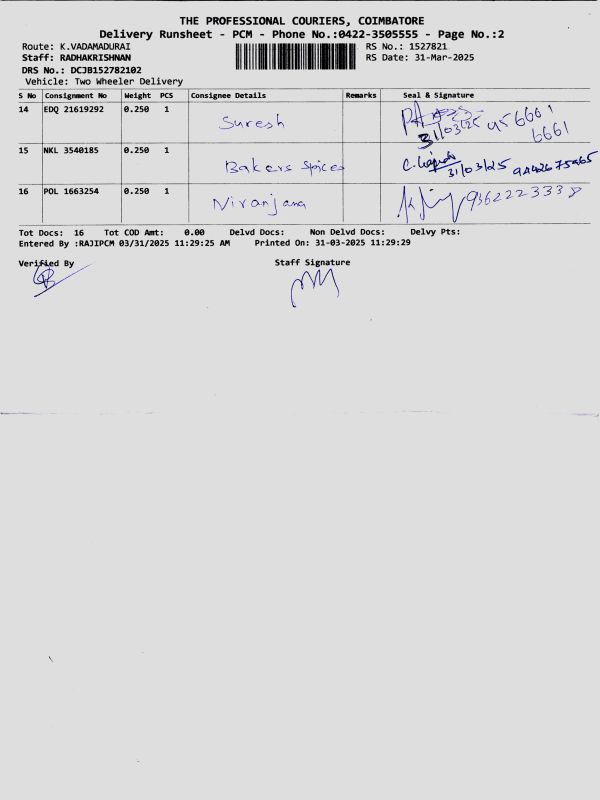 THE PROFESSIONAL COURIERS, COIMBATORE
Delivery Runsheet - PCM - Phone No.:0422-3505555 - Page No.:2
Route: K.VADAMADURAI RS No.: 1527821
Staff: RADHAKRISHNAN RS Date: 31-Mar-2025
DRS No.: DCJB152782102
Vehicle: Two Wheeler Delivery
S No Consignment No Weight PCS Consignee Details Remarks Seal & Signature
14 EDQ 21619292 0.250 1 Suresh 31/03/25 956661
6661
15 NKL 3540185 0.250 1 Bakers Spices 31/03/25
16 POL 1663254 0.250 1 Niranjana
Tot Docs: 16 Tot COD Amt: 0.00 Delvd Docs: Non Delvd Docs: Delvy Pts:
Entered By :RAJIPCM 03/31/2025 11:29:25 AM Printed On: 31-03-2025 11:29:29
Verified By Staff Signature